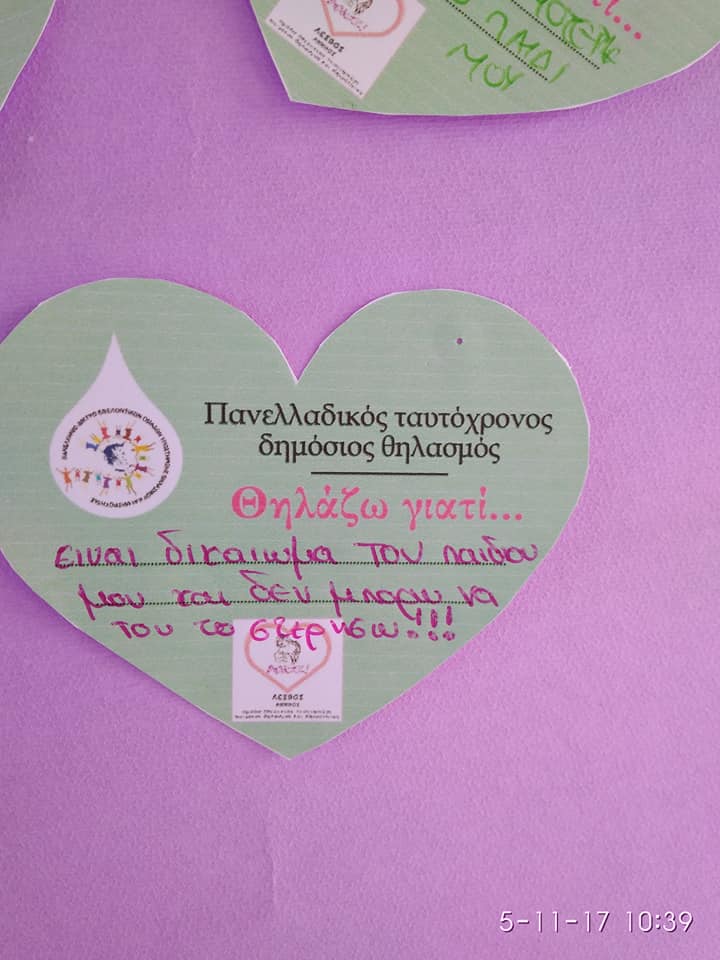 ΛΕΣΒΟΣ
ΛΗΜΝΟΣ
ΜΟΥ
Πανελλαδικός ταυτόχρονος
δημόσιος θηλασμός
Θηλάζω γιατί...
ειναι δικαιωμα του παιδιου
μου και δεν μπορω να
του το στερησω!!!
ΛΕΣΒΟΣ
ΛΗΜΝΟΣ
5-11-17 10:39